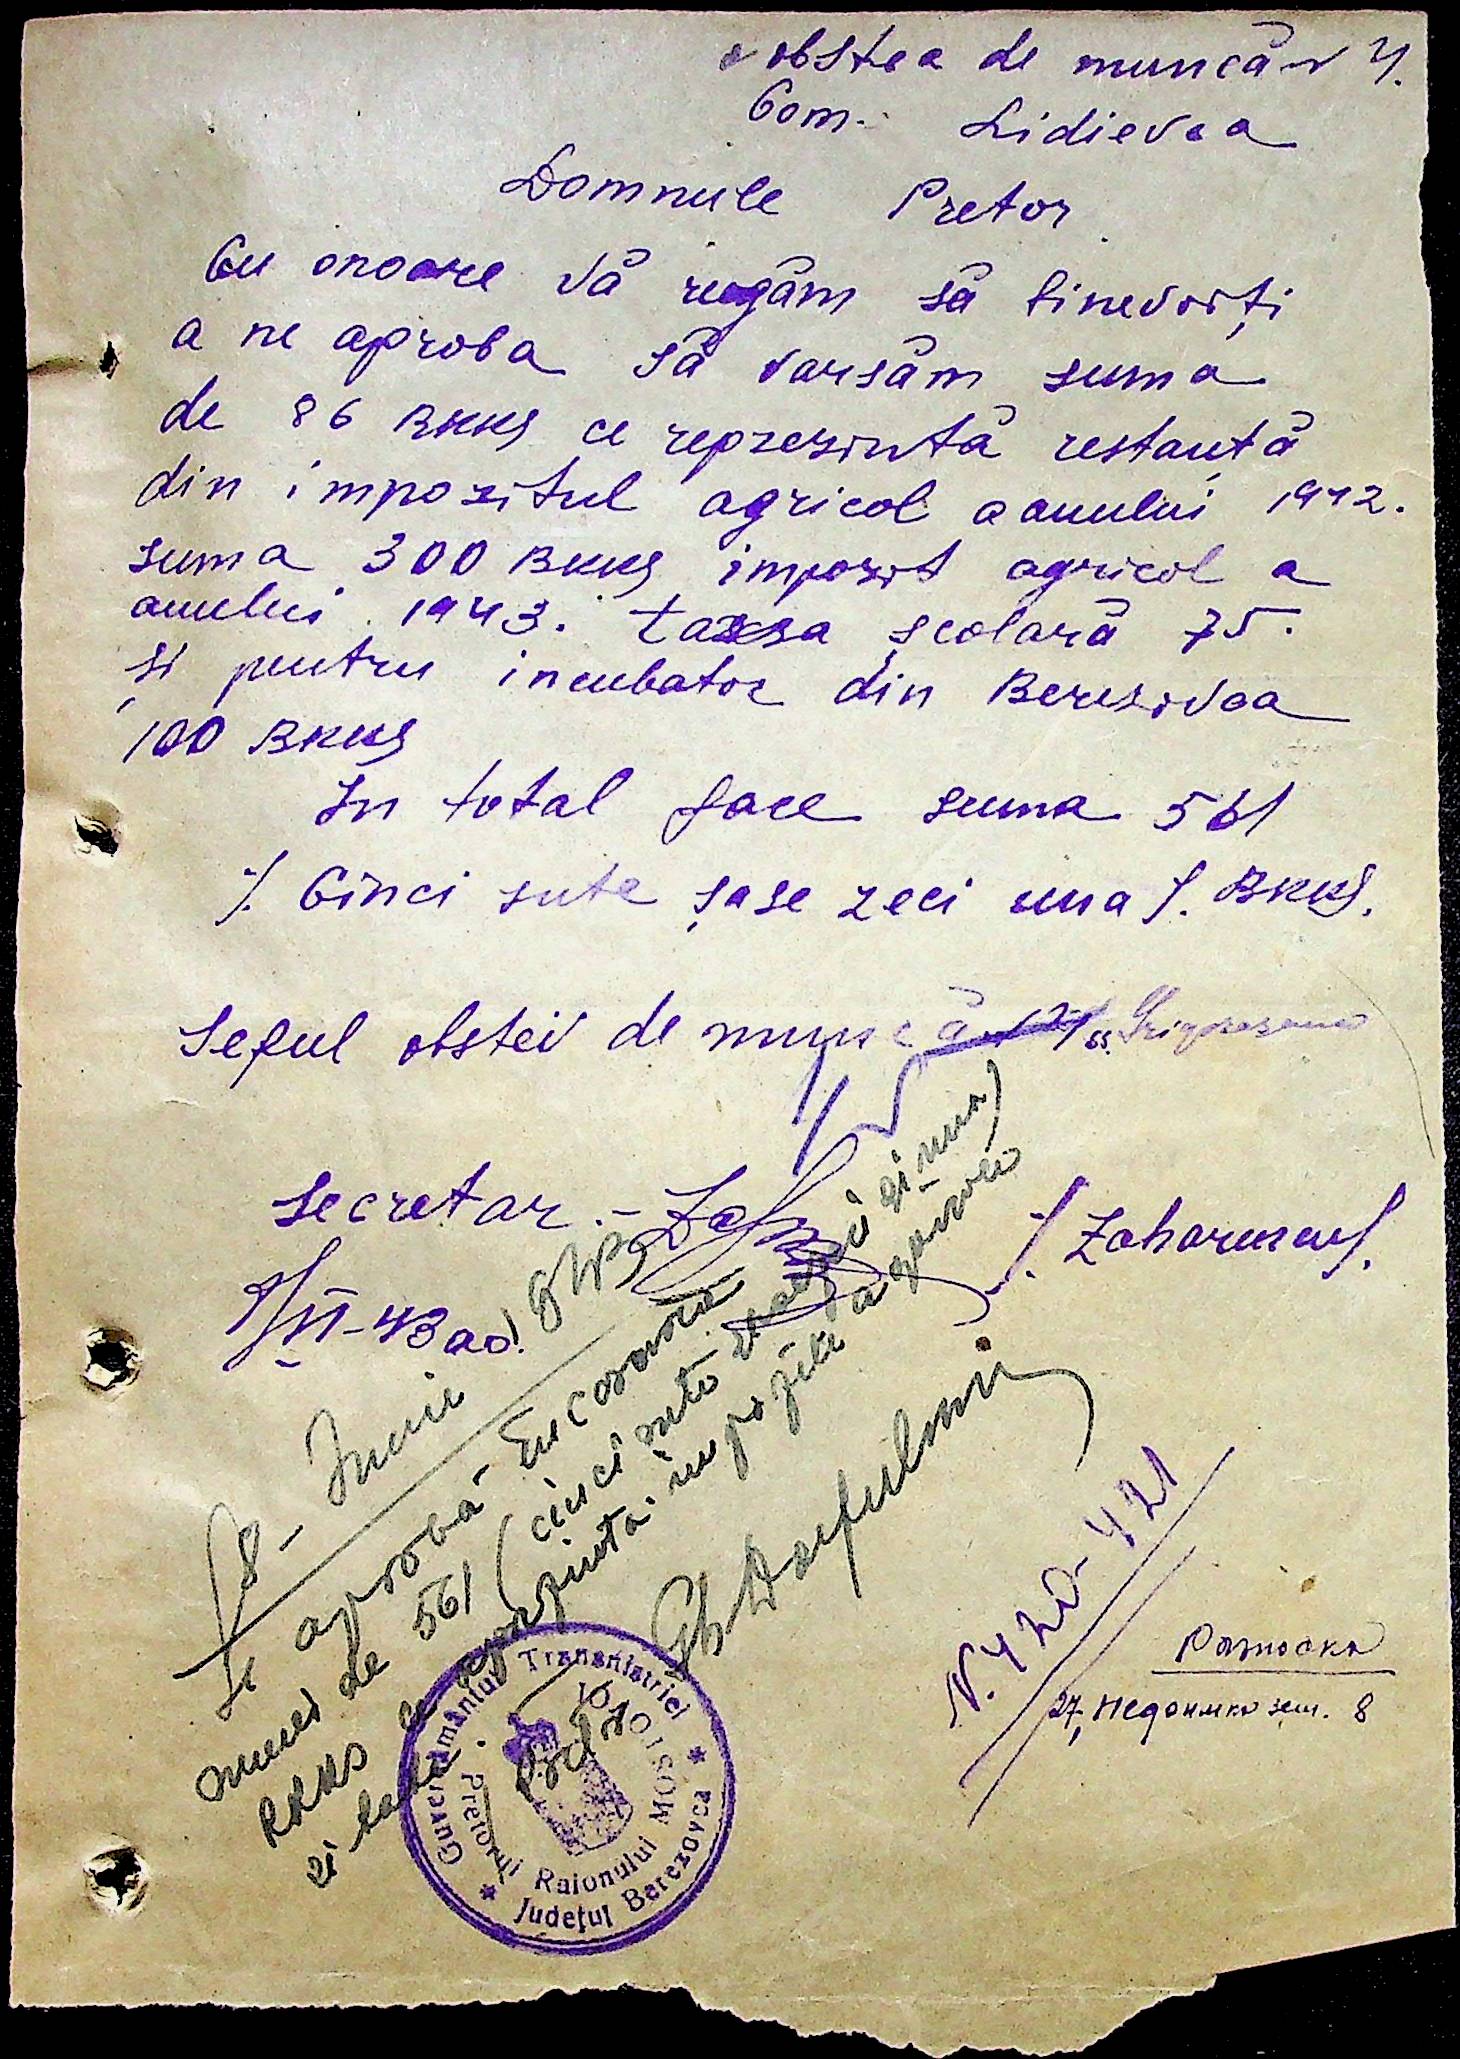 obstea de muncă N 4.
Com. Lidievca
Domnule Pretor
Cu onoare vă rugăm să binevoiți
a ne aproba să varsăm suma
de 86 RKKS ce reprezintă restanță
din impozitul agricol a anului 1942.
suma 300 RKKS impozit agricol a
anului 1943. taxsa școlară 75.
și pentru incubator din Berezovca
100 RKKS
In total face suma 561
/. Cinci sute șase zeci una /. RKKS.
Seful obstei de muncă
Secretar.-
/. Zaharenco /.
1/VI-43 ao.
8 - Iunie
Se aprobă - Encasarea
sumei de 561 (cinci sute șasezeci și una)
RKKS ce reprezintă impozite
și taxe
N. 420-421
Разноска
27, Недоимка зем. 8
Guvernământul Transnistriei
Pretorul Raionului MOSTOVOI
Județul Berezovca